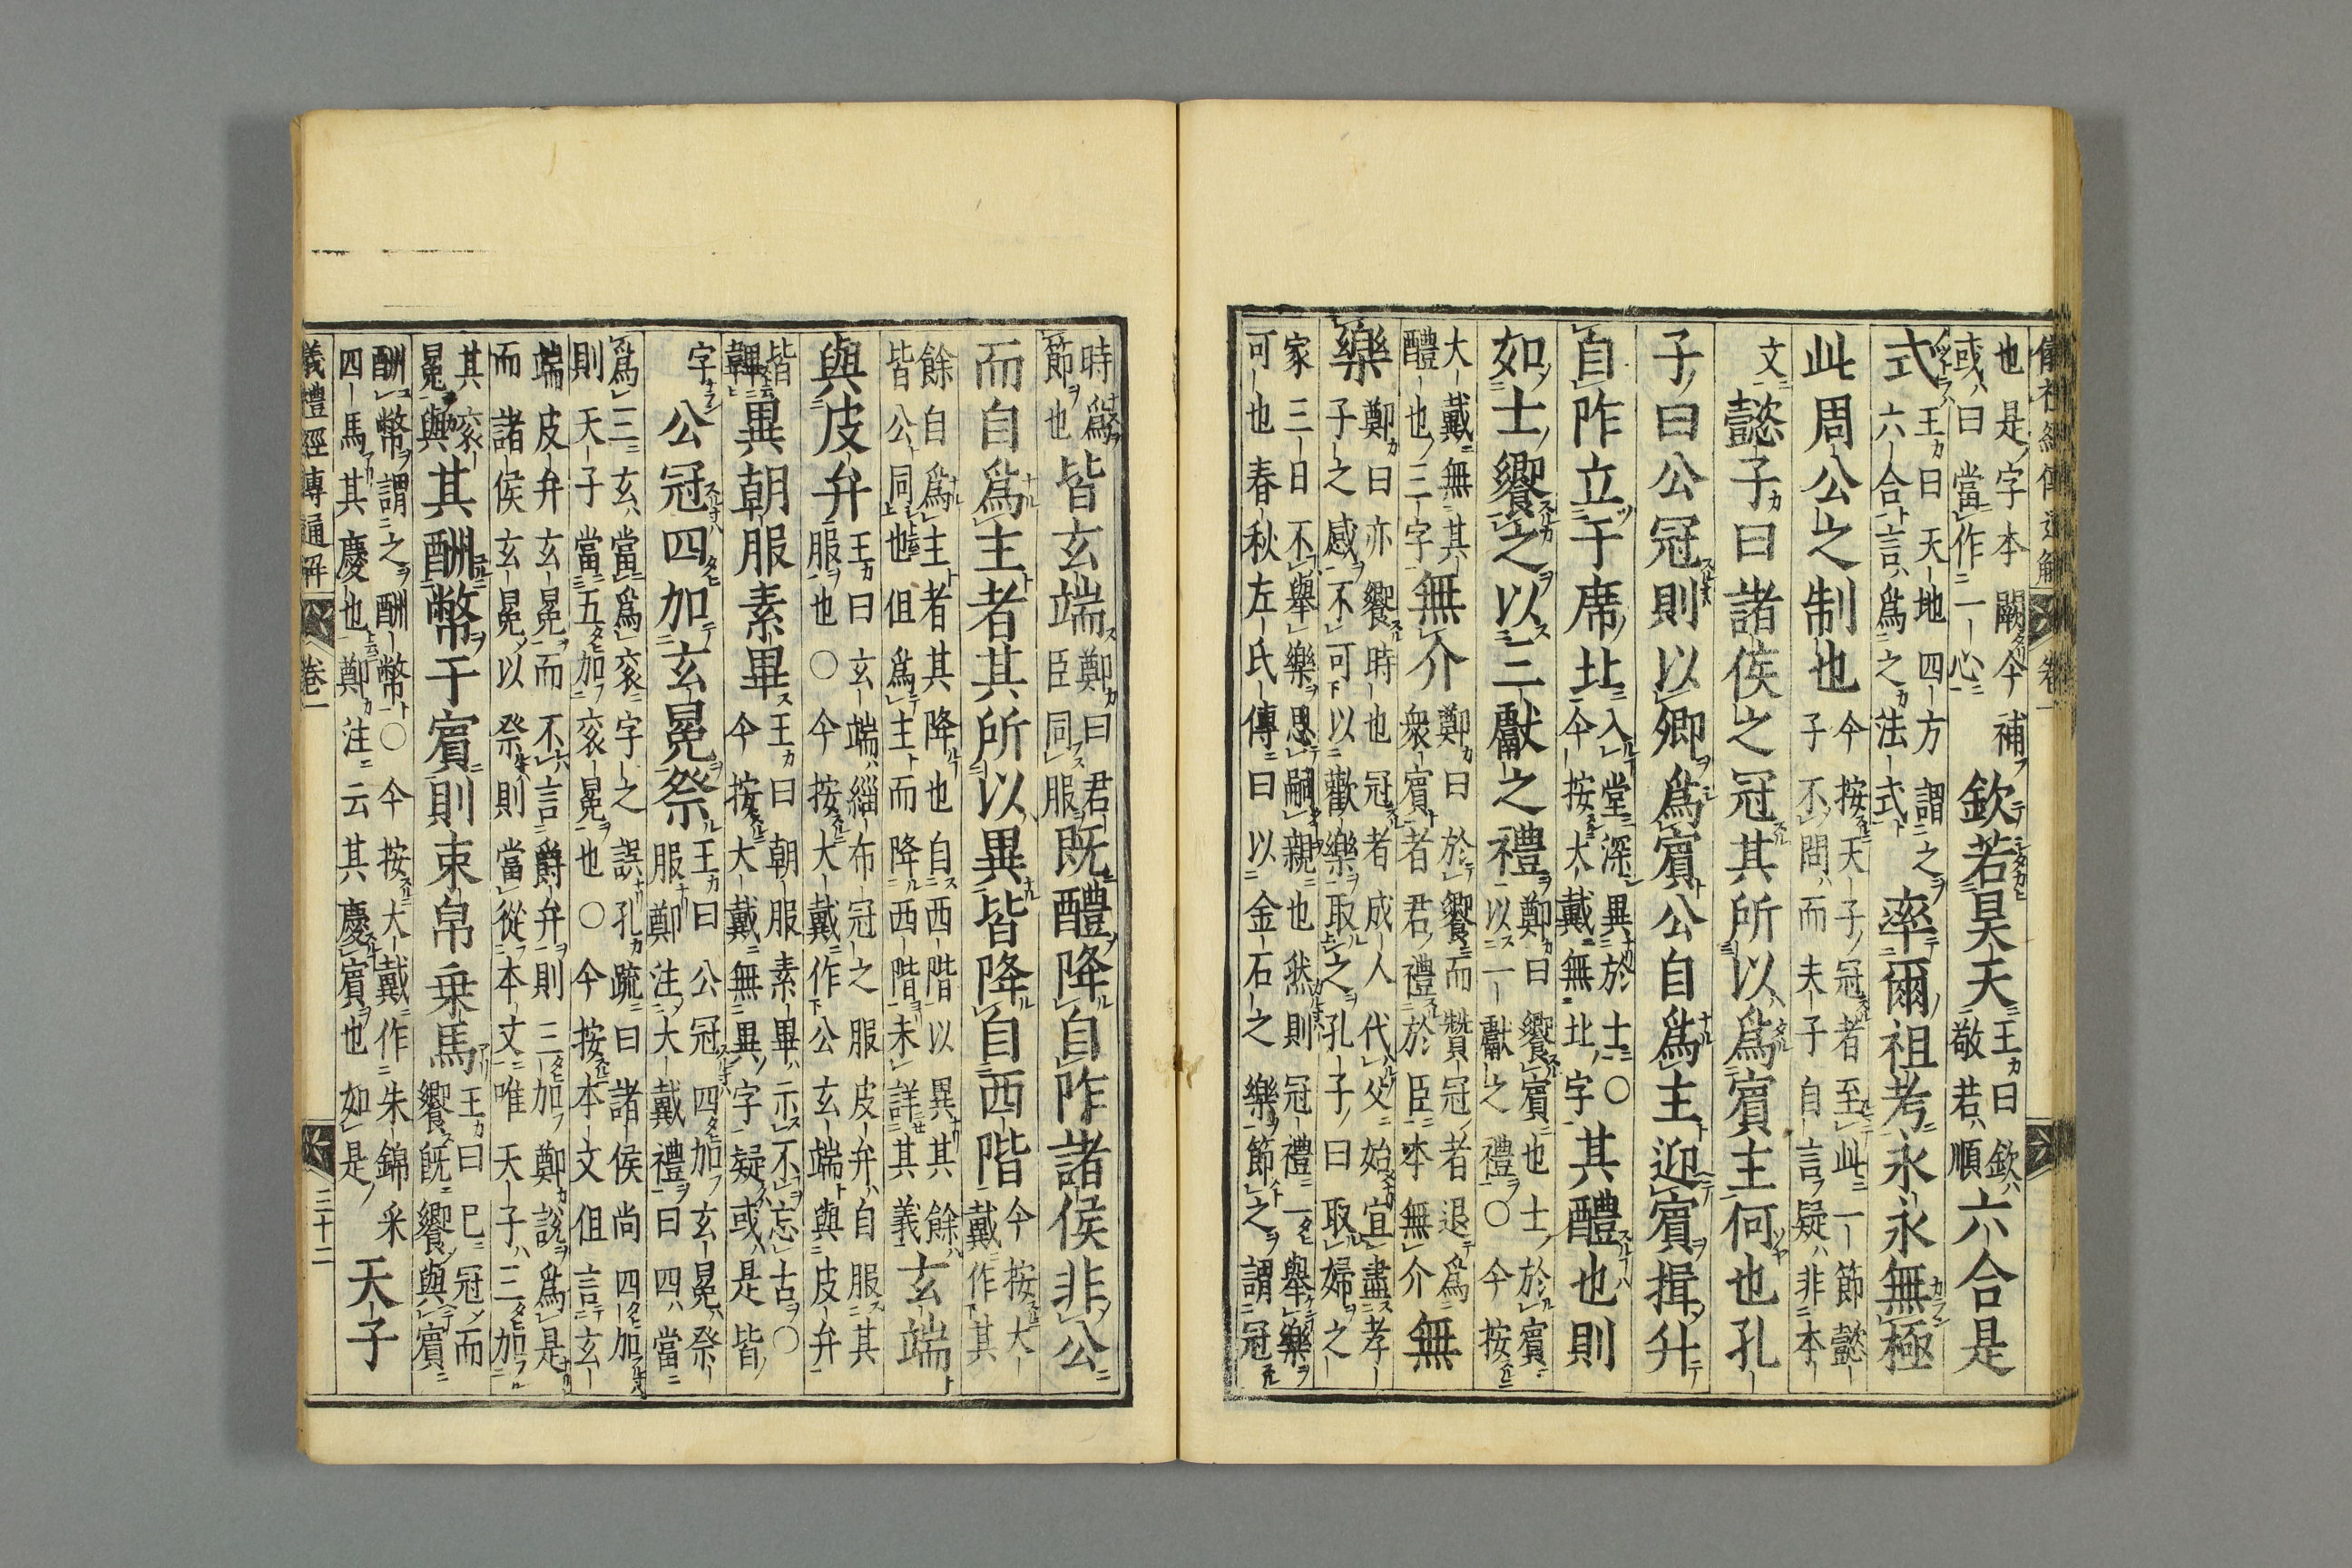 儀禮經傳通解 卷一
也是字本闕今補
或曰當作一心
欽若昊天
王曰欽
敬若順
六合是
式
王曰天地四方謂之
六合言爲之法式
率爾祖考永永無極
此周公之制也
今按天子冠者至此一節懿
子不問而夫子自言疑非本
文
懿子曰諸侯之冠其所以爲賓主何也孔
子曰公冠則以卿爲賓公自爲主迎賓揖升
自阼立于席北
入堂深異於士○
今按大戴無北字
其醴也則
如士饗之以三獻之禮
鄭曰饗賓也士於賓
以一獻之禮○今按
大戴無其
醴也三字
無介
鄭曰於饗而贊冠者退爲
衆賓者君禮於臣本無介
無
樂
鄭曰亦饗時也冠者成人代父始宜盡孝
子之感不可以歡樂取之孔子曰取婦之
家三日不舉樂思嗣親也然則冠禮一舉樂
可也春秋左氏傳曰以金石之樂節之謂冠
時爲
節也
皆玄端
鄭曰君
臣同服
既醴降自阼諸侯非公
而自爲主者其所以異皆降自西階
今按大
戴作其
餘自爲主者其降也自西階以異其餘
皆公同也但爲主而降西階未詳其義
玄端
與皮弁
王曰玄端緇布冠之服皮弁自服其
服也○今按大戴作公玄端與皮弁
皆
韠
異朝服素畢
王曰朝服素畢示不忘古○
今按大戴無異字疑或是皆
字
公冠四加玄冕祭
王曰公冠四加玄冕祭
服鄭注大戴禮曰四當
爲三玄當爲衮字之誤孔疏曰諸侯尚四加
則天子當五加衮冕也○今按本文但言玄
端皮弁玄冕而不言爵弁則三加鄭說爲是
而諸侯玄冕以祭則當從本文唯天子三加
其衮
冕與
其酬幣于賓則束帛乗馬
王曰已冠而
饗既饗與賓
酬幣謂之酬幣○今按大戴作朱錦采
四馬其慶也鄭注云其慶賓也如是
天子
儀禮經傳通解 卷一 三十二